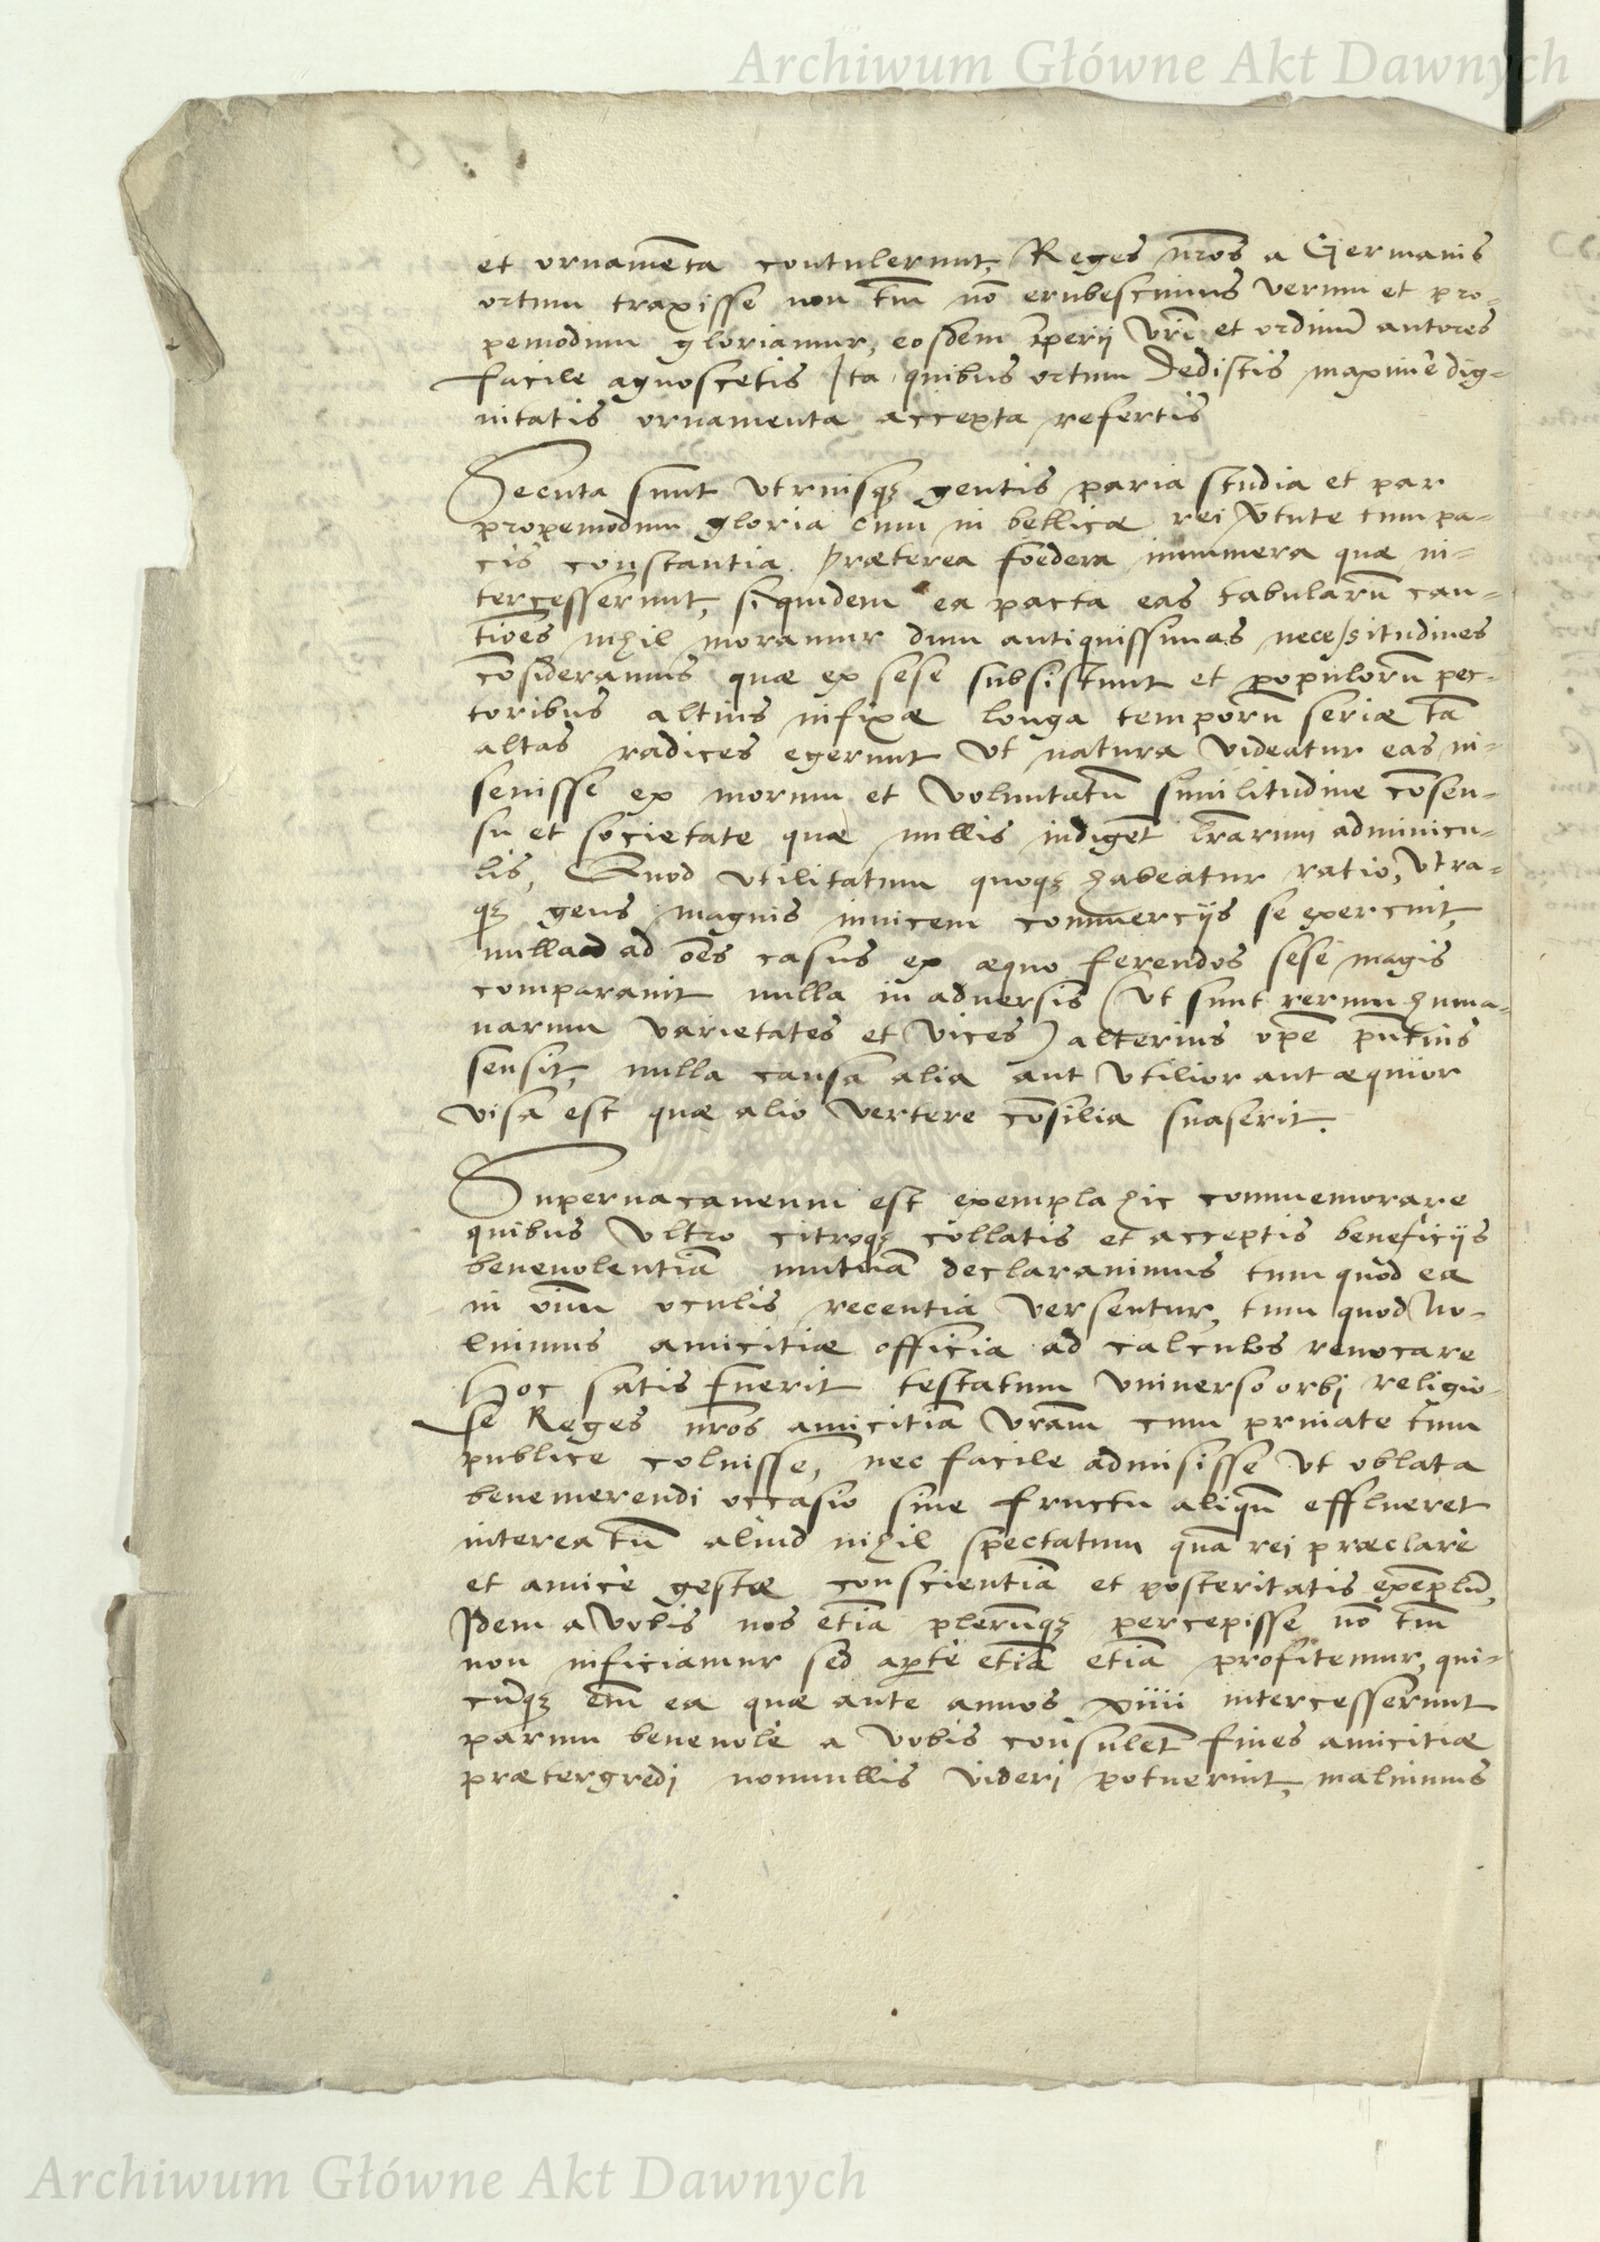 Archiwum Główne Akt Dawnych
et ornamēta contulerunt, Reges nr̄os a Germanis
ortum traxisse non tm̄ nō erubescimus verum et pro-
pemodum gloriamur, eosdem Imperij vr̄i et ordinū autores
facile agnoscetis Ita quibus ortum dedistis maximè dig-
nitatis ornamenta accepta refertis
Secuta sunt vtriusq₃ gentis paria studia et par
propemodum gloria cum in bellicæ rei v̄tute tum pa-
cis constantia. Præterea foedera innumera quæ in-
tercesserunt, siquidem ea pacta eas tabularū cau-
tiōes nihil moramur dum antiquissimas necessitudines
cōsideramus quæ ex sese subsistunt et populorū pec-
toribus altius infixæ longa temporū seriæ tā
altas radices egerunt vt natura videatur eas in-
seuisse ex morum et voluntatū similitudine cōsen-
su et societate quæ nullis indigēt lr̄arum adminicu-
lis, Quod vtilitatum quoq₃ habeatur ratio, vtra-
q₃ gens magnis inuicem commercijs se exercuit,
nulla ad oēs casus ex æquo ferendos sese magis
comparauit nulla in aduersis (vt sunt rerum huma-
narum varietates et vices) alterius opē pn̄tius
sensit, nulla causa alia aut vtilior aut æquior
visa est quæ alio vertere cōsilia suaserit.
Superuacaneum est exempla hic commemorare
quibus vltro citroq₃ collatis et acceptis beneficijs
beneuolentiā mutuā declarauimus tum quod ea
in oīum oculis recentia versentur, tum quod no-
luimus amicitiæ officia ad calculos reuocare
Hoc satis fuerit testatum vniuerso orbi religio-
se Reges nr̄os amicitiā vr̄am cum priuate tum
publice coluisse, nec facile admisisse vt oblata
benemerendi occasio sine fructu aliqn̄ efflueret
interea tn̄ aliud nihil spectatum quā rei præclarè
et amicè gestæ conscientiā et posteritatis exēplū,
Idem a vobis nos etiā plerūq₃ percepisse nō tm̄
non inficiamur sed ap̄te etiā etiā profitemur, qui-
cūq₃ em̄ ea quæ ante annos xiiii intercesserunt
parum beneuolè a vobis consulēt fines amicitiæ
prætergredj nonnullis viderj potuerint, maluimus
Archiwum Główne Akt Dawnych